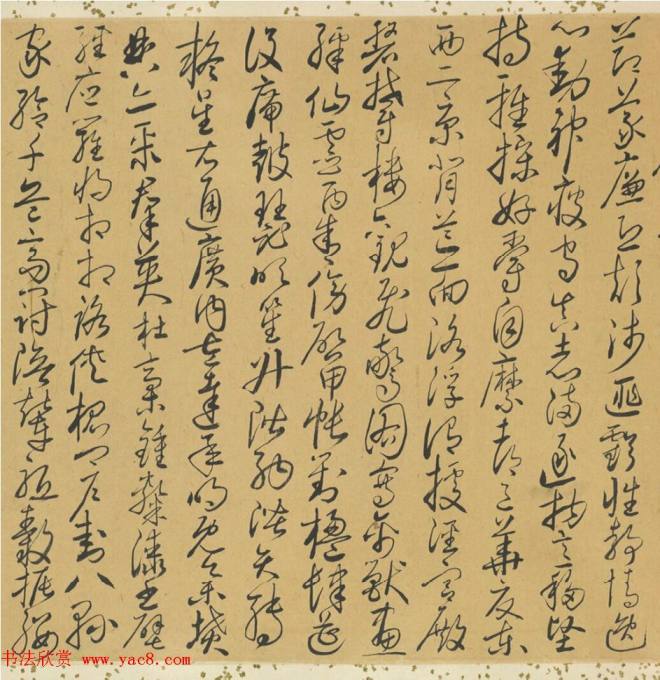 節義廉退顛沛匪虧性靜情逸
心動神疲守真志滿逐物意移堅
持雅操好爵自縻都邑華夏東
西二京背芒面洛浮渭據涇宮殿
盤鬱樓觀飛驚圖寫禽獸畫
綵仙靈丙舍傍啟甲帳對楹肆筵
設席鼓瑟吹笙升階納陛弁轉
疑星右通廣內左達承明既集墳
典亦聚群英杜稿鍾隸漆書壁
經府羅將相路俠槐卿戶封八縣
家給千兵高冠陪輦驅轂振纓
书法欣赏 www.yac8.com